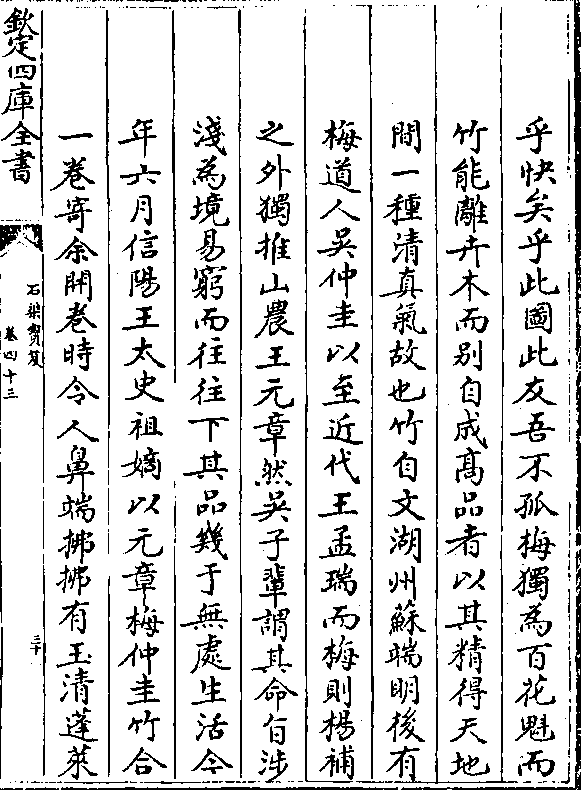 乎快矣乎此圖此友吾不孤梅獨為百花魁而
竹能離卉木而别自成髙品者以其精得天地
間一種清真氣故也竹自文湖州蘇端明後有
梅道人吳仲圭以至近代王孟瑞而梅則楊補
之外獨推山農王元章然吳子輩謂其命旨涉
淺為境易窮而往往下其品幾于無處生活今
年六月信陽王太史祖嫡以元章梅仲圭竹合
一卷寄余開卷時令人鼻端拂拂有玉清蓬萊
欽定四庫全書
石渠寶笈
卷四十三
三十